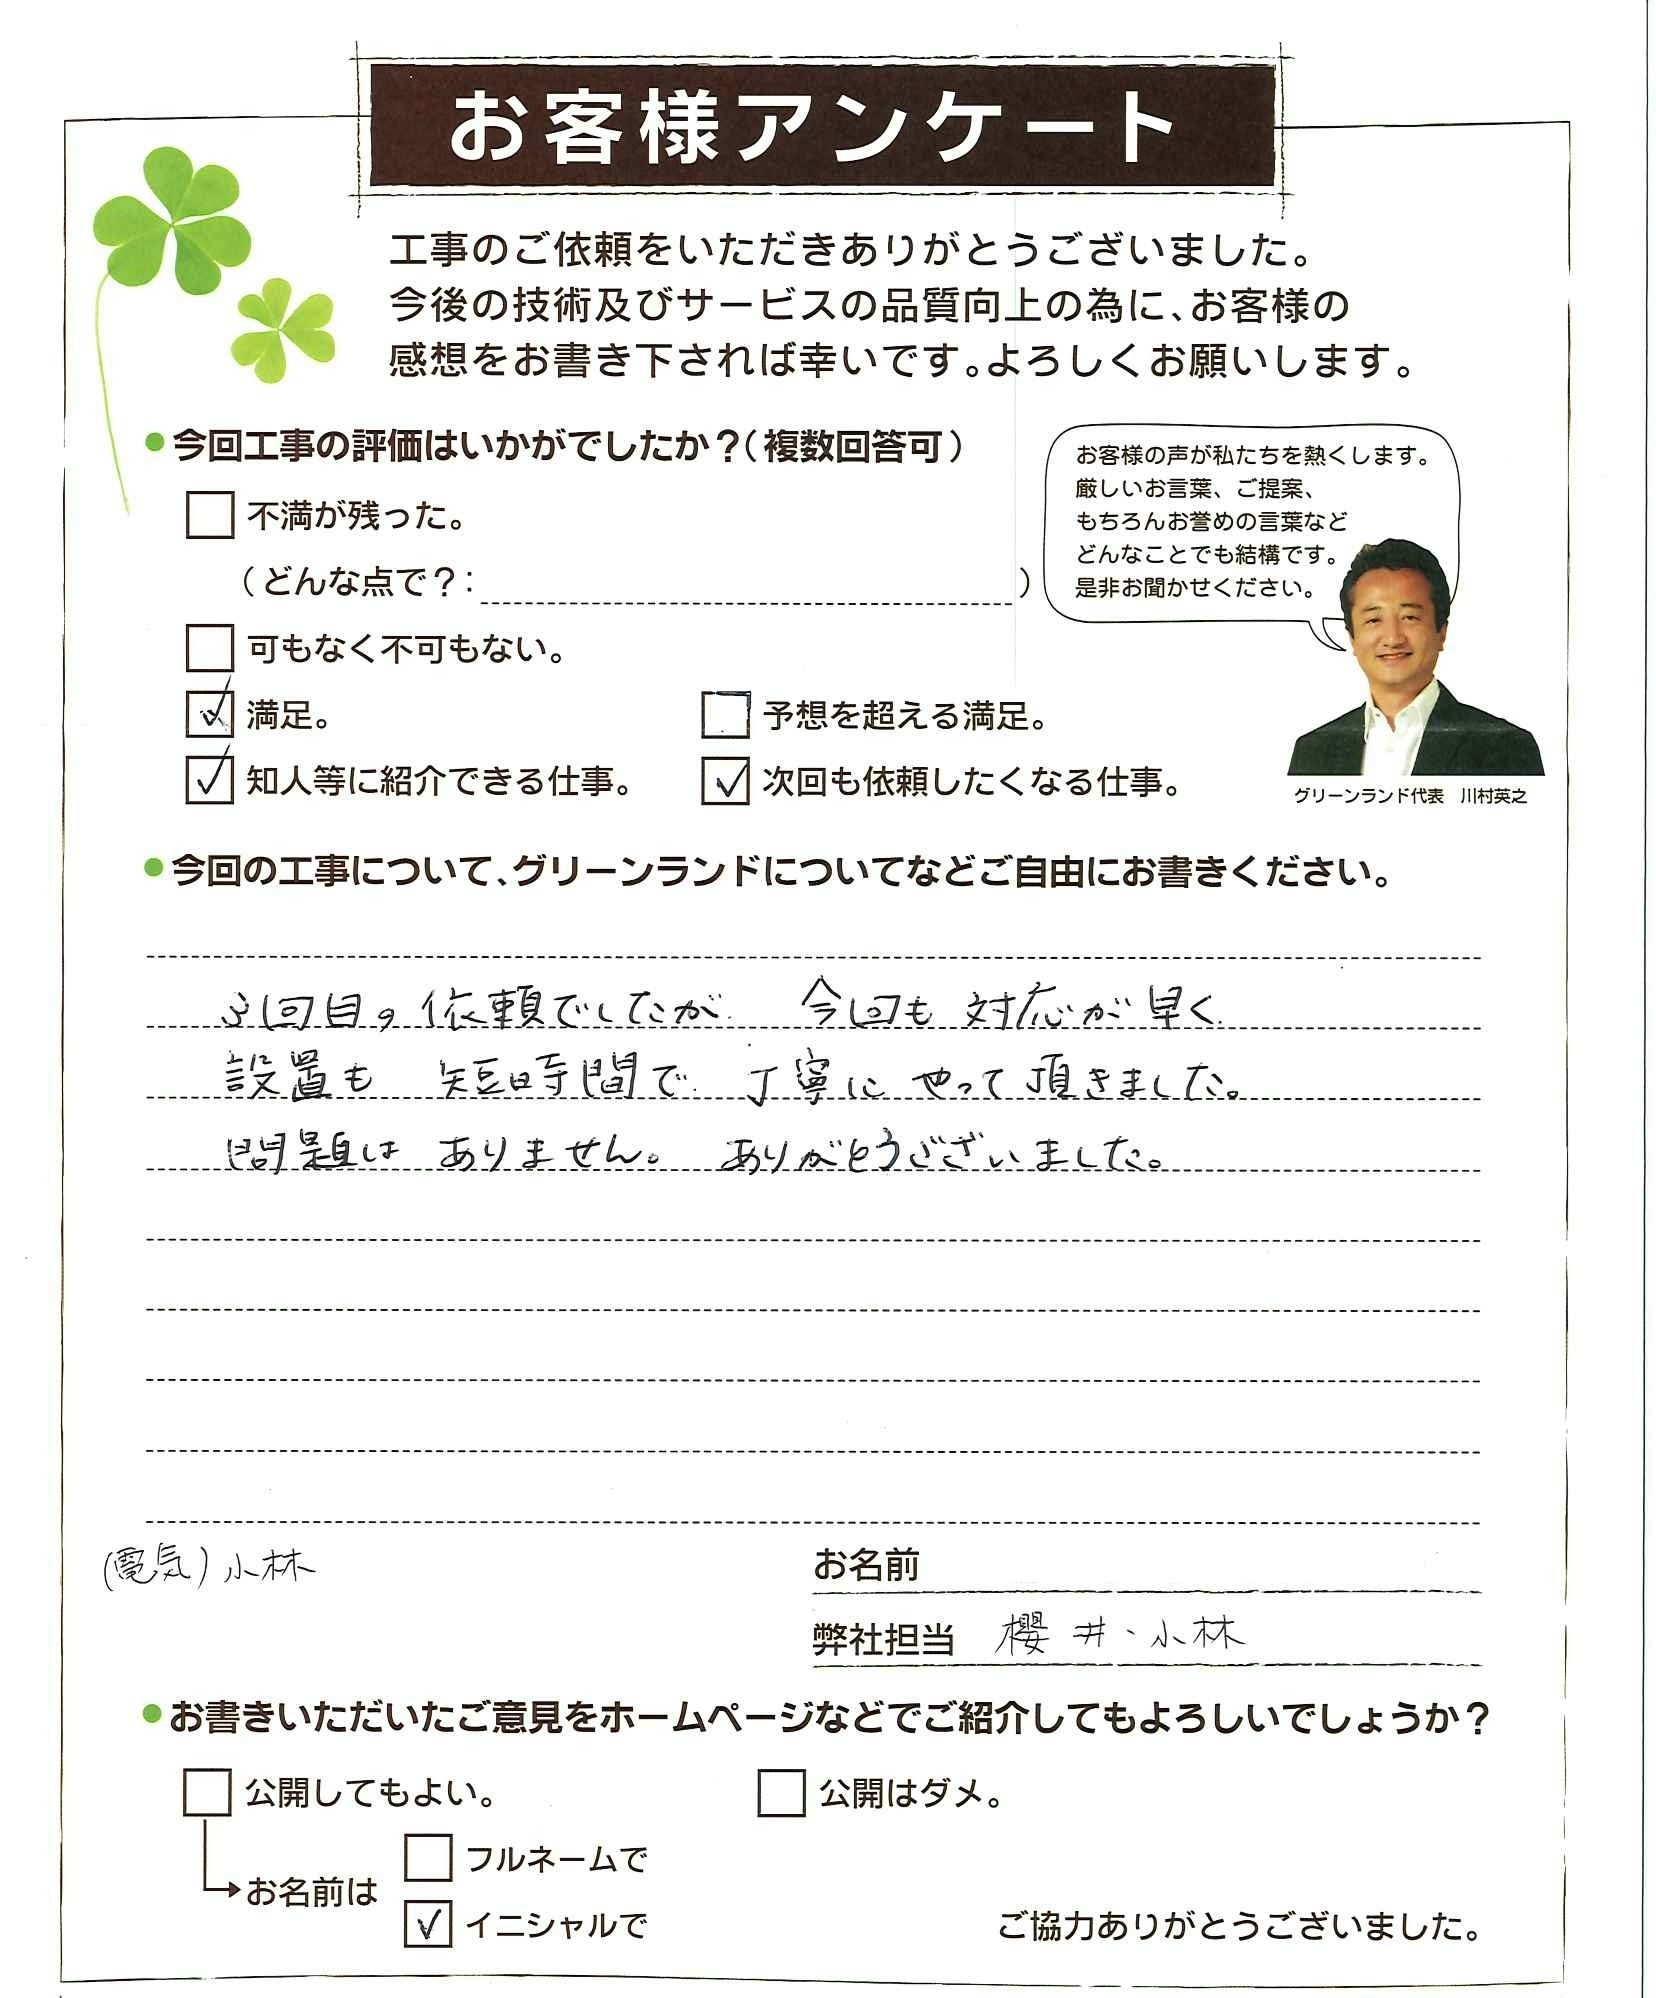 お客様アンケート
工事のご依頼をいただきありがとうございました。
今後の技術及びサービスの品質向上の為に、お客様の
感想をお書き下されば幸いです。よろしくお願いします。
●今回工事の評価はいかがでしたか?(複数回答可)
不満が残った。
(どんな点で?: )
可もなく不可もない。
満足。
予想を超える満足。
知人等に紹介できる仕事。
次回も依頼したくなる仕事。
お客様の声が私たちを熱くします。
厳しいお言葉、ご提案、
もちろんお誉めの言葉など
どんなことでも結構です。
是非お聞かせください。
グリーンランド代表 川村英之
●今回の工事について、グリーンランドについてなどご自由にお書きください。
3回目の依頼でしたが 今回も対応が早く
設置も 短時間で 丁寧に やって頂きました。
問題は ありません。 ありがとうございました。
(電気)小林
お名前
弊社担当 櫻井、小林
●お書きいただいたご意見をホームページなどでご紹介してもよろしいでしょうか?
公開してもよい。
公開はダメ。
お名前は
フルネームで
イニシャルで
ご協力ありがとうございました。